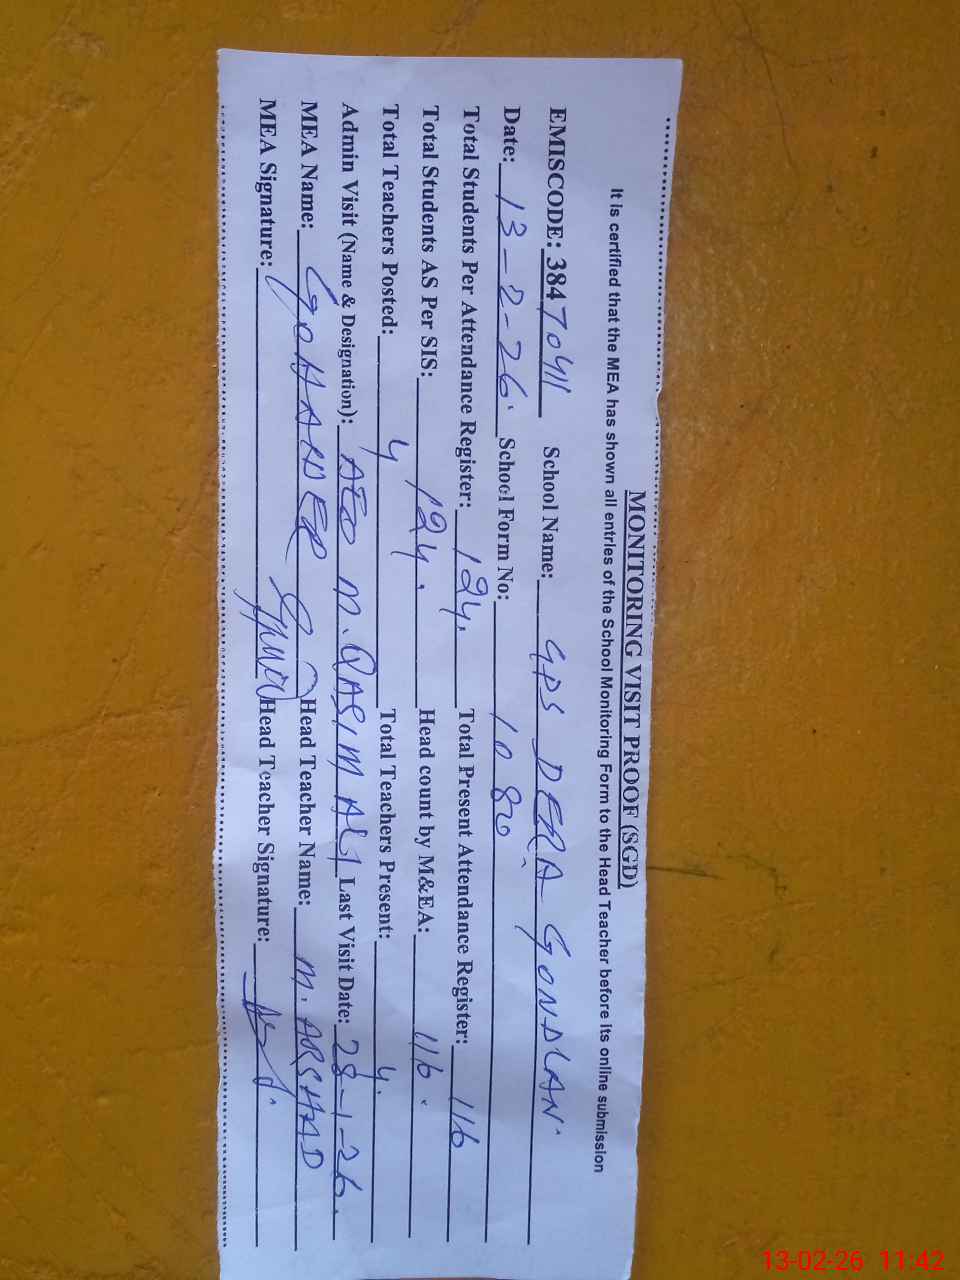 MONITORING VISIT PROOF (SGD)
It is certified that the MEA has shown all entries of the School Monitoring Form to the Head Teacher before its online submission
EMISCODE: 38470411 School Name: GPS DERA GONDLAN.
Date: 13-2-26. School Form No: 1080
Total Students Per Attendance Register: 124. Total Present Attendance Register: 116
Total Students AS Per SIS: 124. Head count by M&EA: 116.
Total Teachers Posted: 4 Total Teachers Present: 4.
Admin Visit (Name & Designation): AEO M. QASIM ALI Last Visit Date: 28-1-26.
MEA Name: Head Teacher Name: M. ARSHAD
MEA Signature: Head Teacher Signature:
13-02-26 11:42